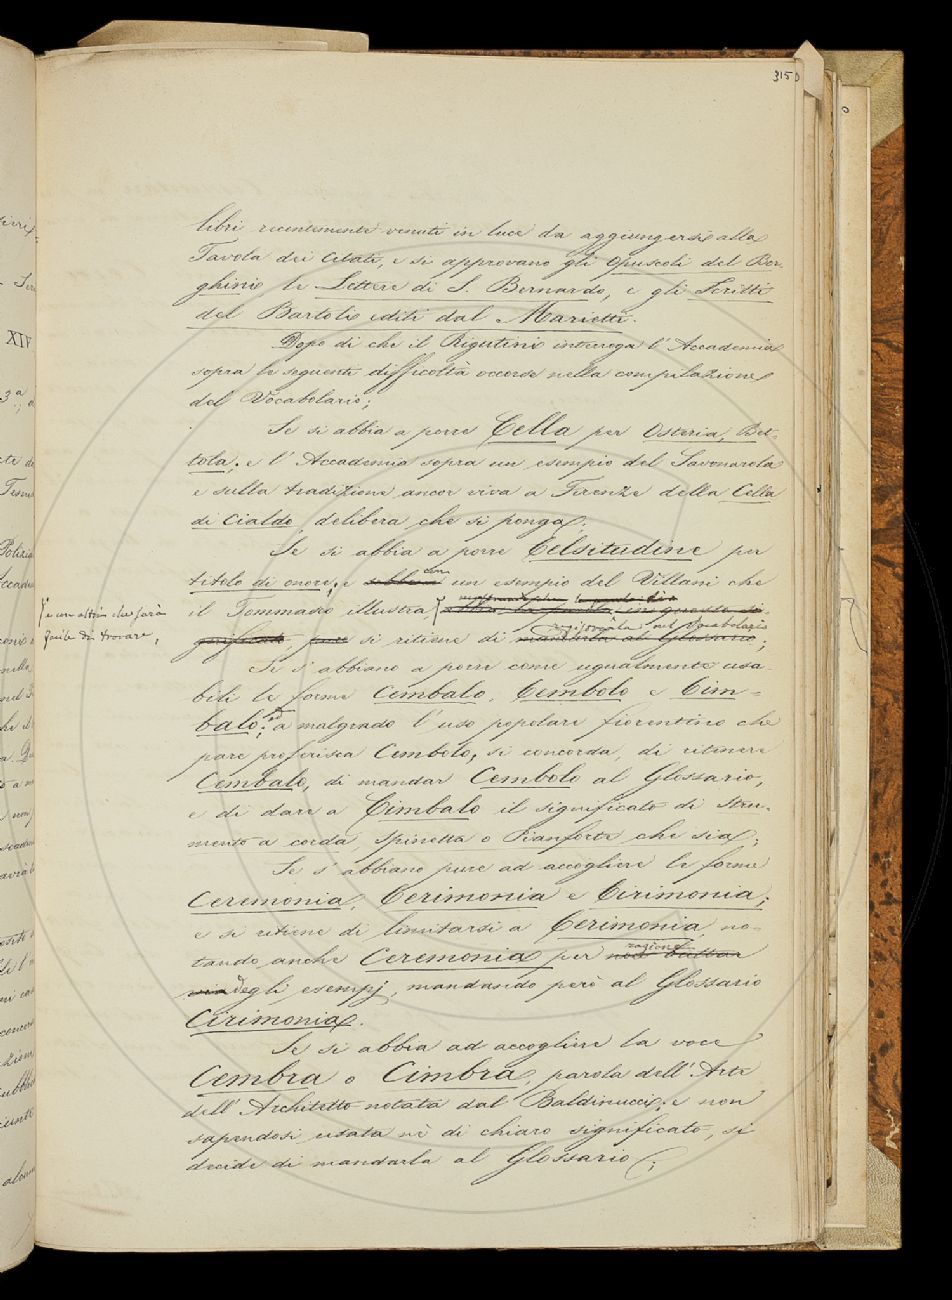 315
libri recentemente venuti in luce da aggiungersi alla
Tavola dei Citati, e si approvano gli Opuscoli del Bor-
ghini le Lettere di S. Bernardo, e gli Scritti
del Bartoli editi dal Marietti.
Dopo di che il Rigutini interroga l'Accademia
sopra le seguenti difficoltà occorse nella compilazione
del Vocabolario;
Se si abbia a porre Cella per Osteria, Bet-
tola; e l'Accademia sopra un esempio del Savonarola
e sulla tradizione ancor viva a Firenze della Cella
di Cialdo, delibera che si ponga;
Se si abbia a porre Celsitudine per
titolo di onore; e sebbene con un esempio del Villani che
il Tommaseo illustra,
e con altri che sarà
facile di trovare,
si ritiene di registrarla nel Vocabolario
mandarla al Glossario;
Se s'abbiano a porre come ugualmente usa
bili le forme Cembalo, Cembolo e Cim-
balo; ed a malgrado l'uso popolare fiorentino che
pare preferisca Cembolo, si concorda, di ritenere
Cembalo, di mandar Cembolo al Glossario,
e di dare a Cimbalo il significato di Stru-
mento a corda, Spinetta o Pianforte che sia;
Se s'abbiano pure ad accogliere le forme
Ceremonia, Cerimonia e Cirimonia;
e si ritiene di limitarsi a Cerimonia no-
tando anche Ceremonia per ragione
degli esempj, mandando però al Glossario
Cirimonia.
Se si abbia ad accogliere la voce
Cembra o Cimbra, parola dell'Arte
dell'Architetto notata dal Baldinucci; e non
sapendosi usata nè di chiaro significato, si
decide di mandarla al Glossario;